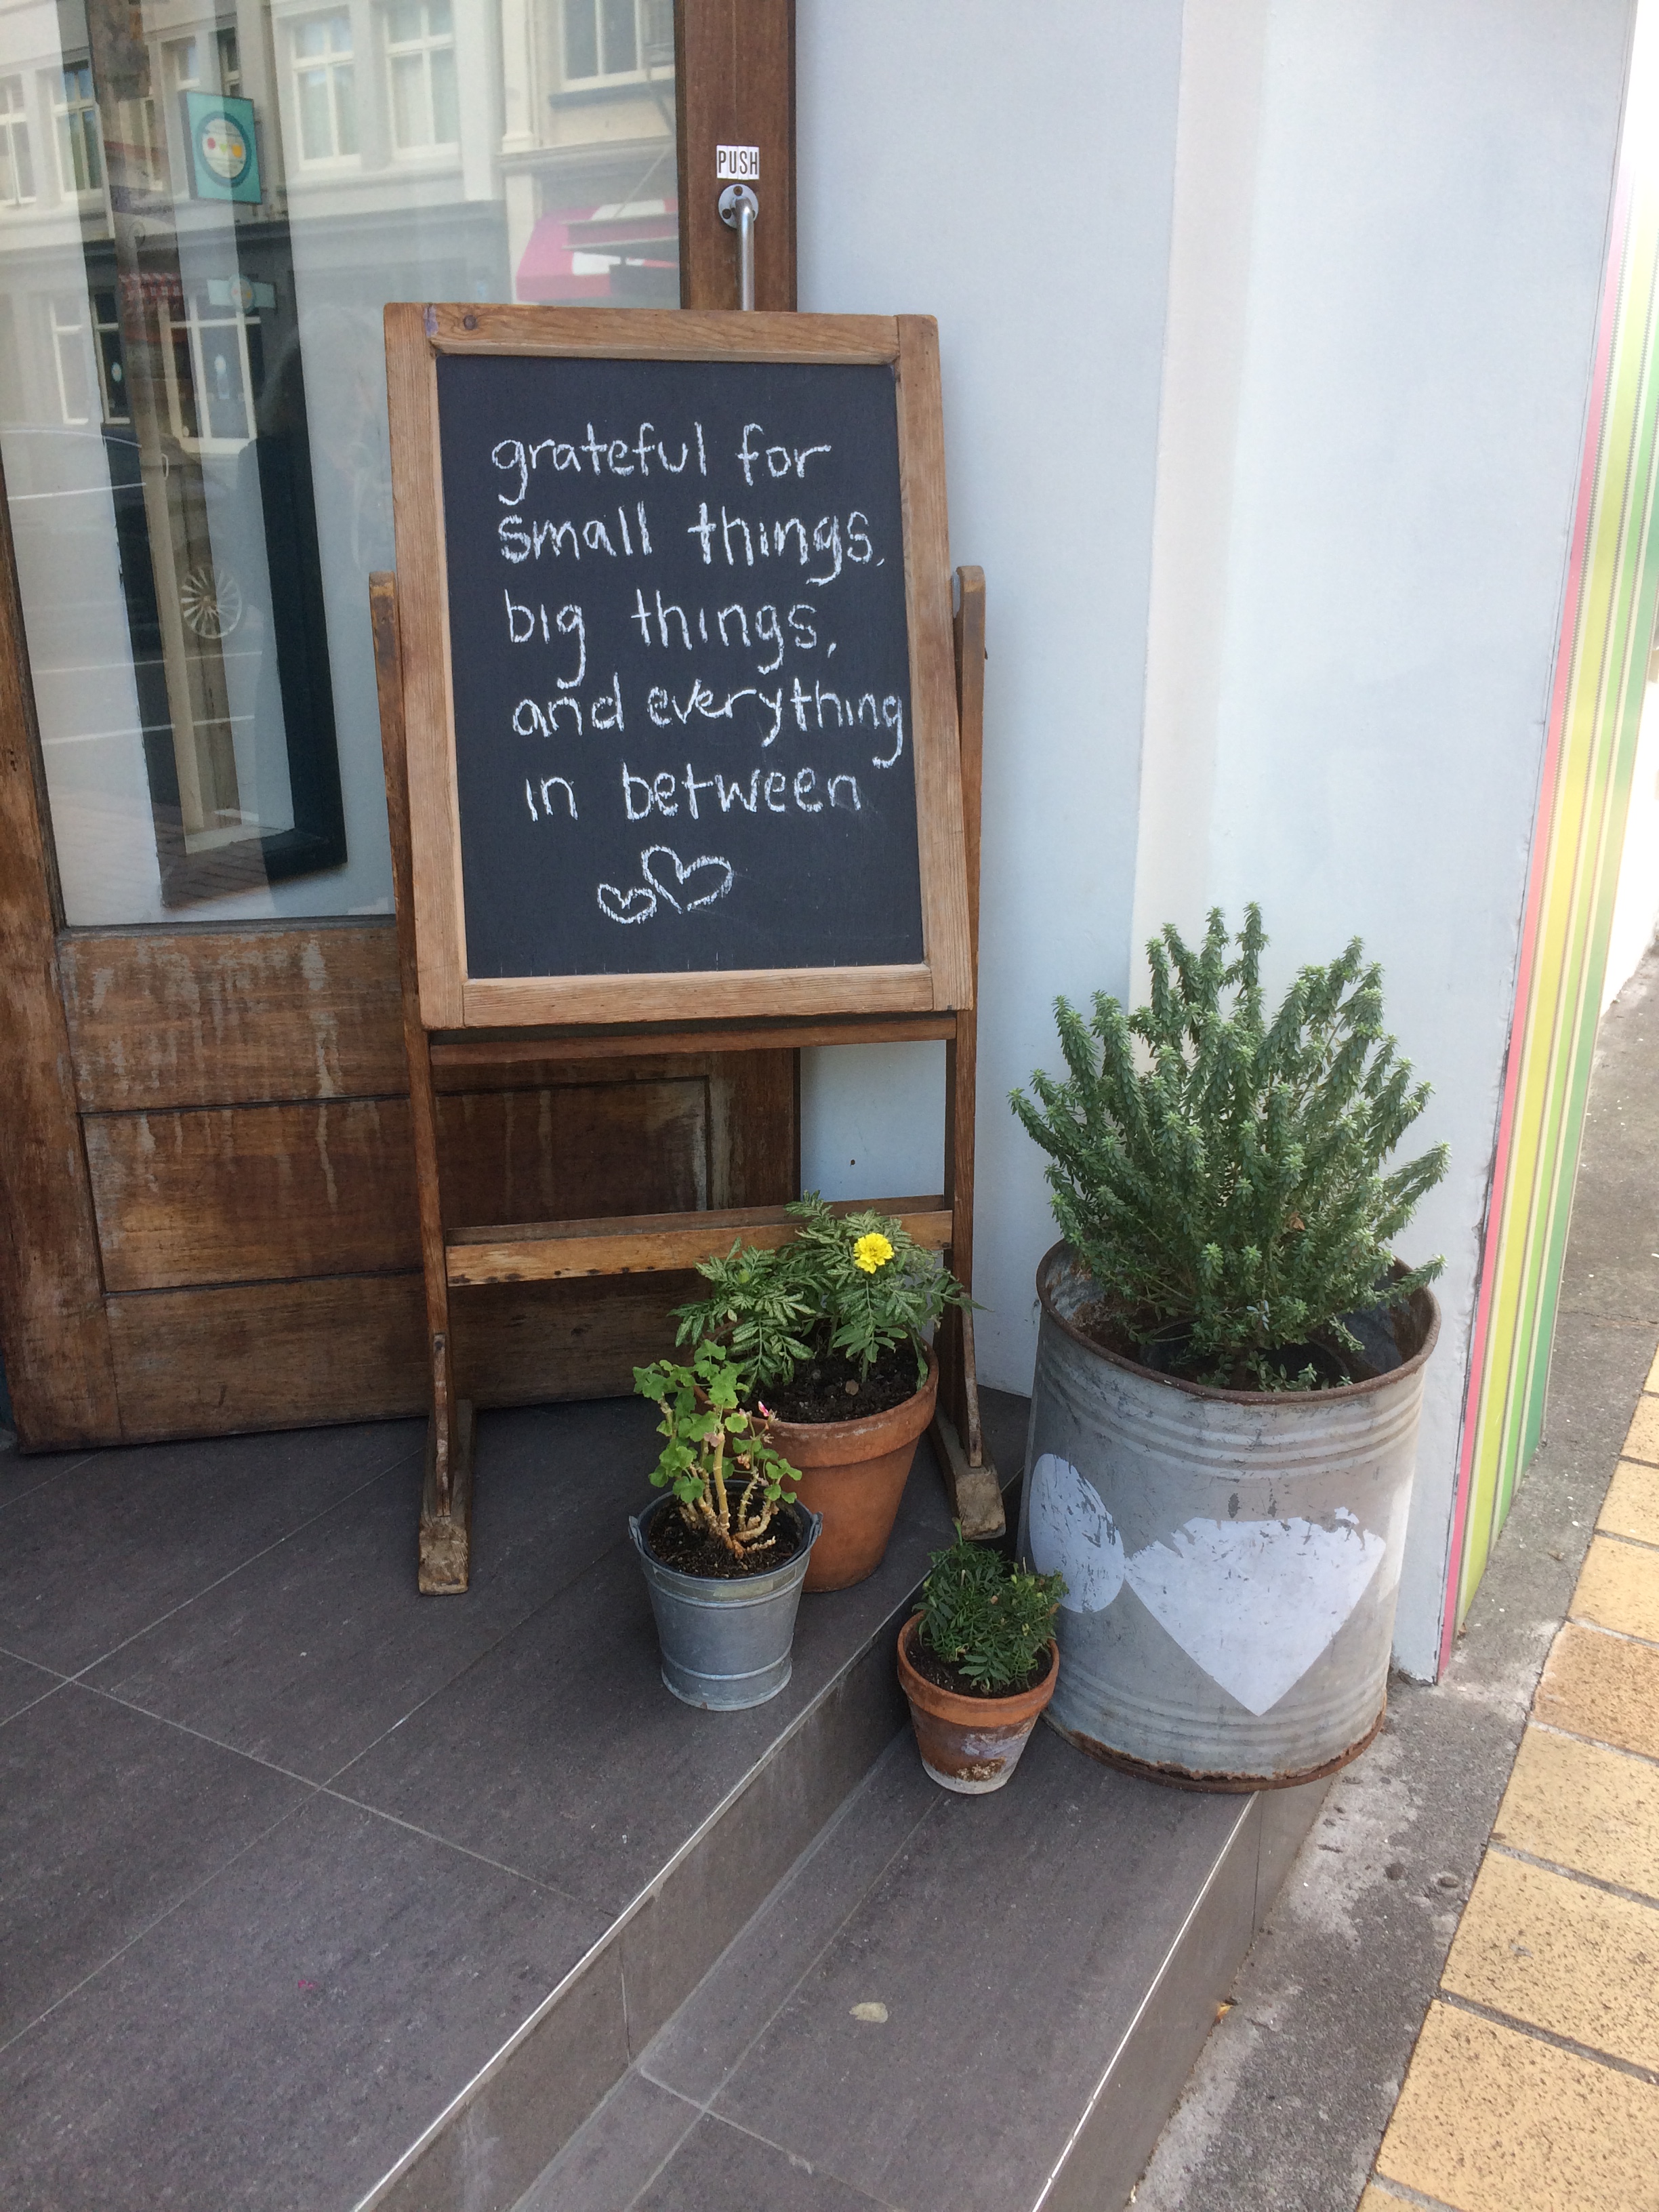 PUSH
grateful for
small things,
big things,
and everything
in between